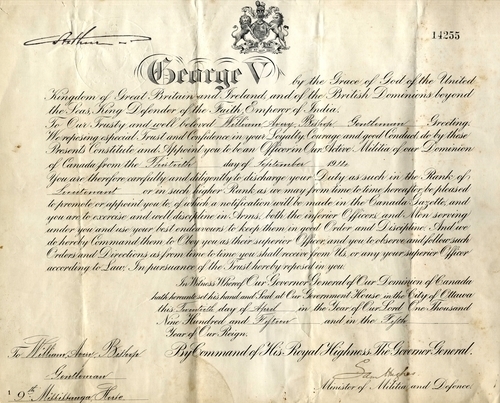 Arthur
14255
George V by the Grace of God of the United
Kingdom of Great Britain and Ireland, and of the British Dominions beyond
the Seas, King Defender of the Faith, Emperor of India.
To Our Trusty and well beloved William Avery Bishop Gentleman Greeting.
We reposing especial Trust and Confidence in your Loyalty Courage and good Conduct do by these
Presents Constitute and Appoint you to be an Officer in Our Active Militia of our Dominion
of Canada from the Thirtieth day of September 1914
You are therefore carefully and diligently to discharge your Duty as such in the Rank of
Lieutenant or in such higher Rank as we may from time to time hereafter be pleased
to promote or appoint you to, of which a notification will be made in the Canada Gazette, and
you are to exercise and well discipline in Arms, both the inferior Officers and Men serving
under you and use your best endeavours to keep them in good Order and Discipline. And we
do hereby Command them to Obey you as their superior Officer, and you to observe and follow such
Orders and Directions as from time to time you shall receive from Us, or any superior Officer
according to Law. In pursuance of the Trust hereby reposed in you.
In Witness Whereof Our Governor General of Our Dominion of Canada
hath hereunto set his hand and Seal at Our Government House in the City of Ottawa
this Twentieth day of April in the Year of Our Lord One Thousand
Nine Hundred and Fifteen and in the Fifth
Year of Our Reign.
By Command of His Royal Highness, The Governor General.
To William Avery Bishop
Gentleman
9th Mississauga Horse
Sam Hughes
Minister of Militia and Defence.